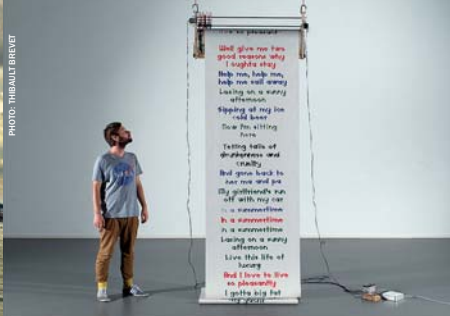 PHOTO: THIBAULT BREVET
so pleasant
Well give me two
good reasons why
I oughta stay
Help me, help me,
help me sail away
Lazing on a sunny
afternoon
Sipping at my ice
cold beer
Now I'm sitting
here
Telling tales of
drunkenness and
cruelty
And gone back to
her ma and pa
My girlfriend's run
off with my car
in a summertime
in a summertime
in a summertime
Lazing on a sunny
afternoon
Live this life of
luxury
And I love to live
so pleasantly
I gotta big fat